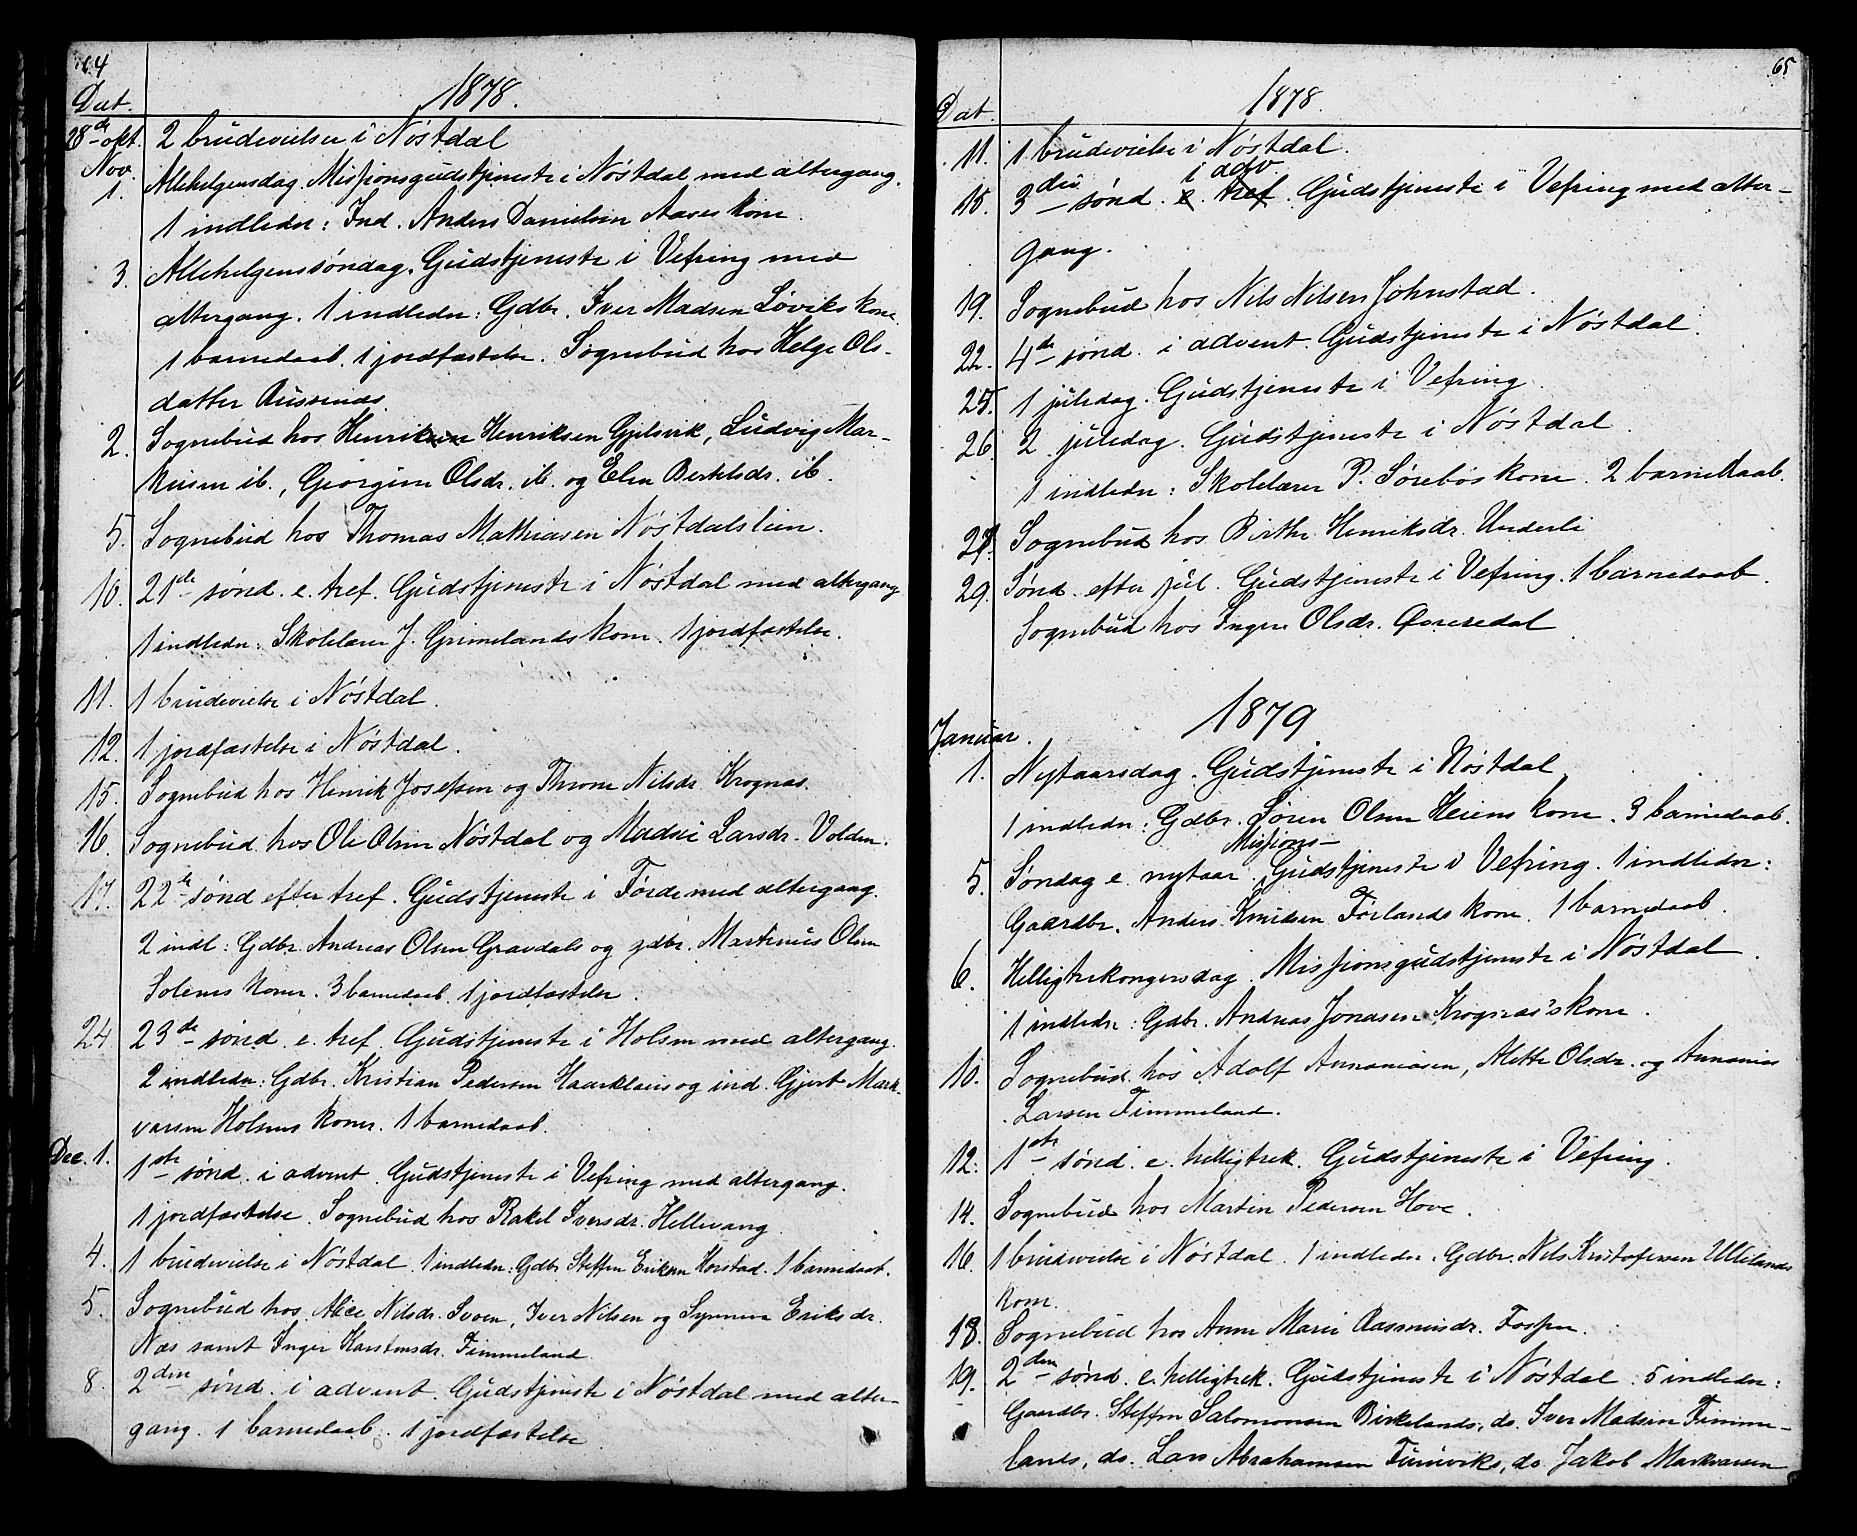 64
Dat. 1878.
28de okt. 2 brudevielser i Nöstdal
Nov.
1. Allehelgensdag. Missionsgudstjeneste i Nöstdal med altergang.
1 indleder: Ind. Anders Danielsen Aases kone.
3. Allehelgenssöndag. Gudstjeneste i Vefring med
altergang. 1 indleder: Gdbr. Iver Madsen Löviks kone.
1 barnedaab. 1 jordfæstelse. Sognebud hos Helge Ols-
datter Russenæs.
2. Sognebud hos Henrik Henriksen Gjelsvik, Ludvig Mar-
kusen ib., Georgine Olsdr. ib. og Elen Bertelsdr. ib.
5. Sognebud hos Thomas Mathiasen Nöstdalslien.
10. 21de sönd. e. tref. Gudstjeneste i Nöstdal med altergang
1 indleder: Skolelærer J. Grimelands kone. 1 jordfæstelse.
11. 1 brudevielse i Nöstdal.
12. 1 jordfæstelse i Nöstdal.
15. Sognebud hos Henrik Josefsen og Throne Nilsdr. Krognæs.
16. Sognebud hos Ole Olsen Nöstdal og Madsi Larsdr. Volden.
17. 22de sönd efter tref. Gudstjeneste i Förde med altergang.
2 indl: Gdbr. Andreas Olsen Gravdals og gdbr. Martinus Olsen
Solems koner. 3 barnedaab. 1 jordfæstelse.
24 23de sönd. e. tref. Gudstjeneste i Holsen med altergang.
2 indleder: Gdbr. Kristian Pedersen Haarklaus og ind. Gjert Mark-
varsen Holsens koner. 1 barnedaab.
Dec. 1. 1ste sönd. i advent. Gudstjeneste i Vefring med altergang.
1 jordfæstelse. Sognebud hos Rakel Iversdr. Hellevang.
4. 1 brudevielse i Nöstdal. 1 indleder: Gdbr. Steffen Eriksen Horstad. 1 barnedaab.
5. Sognebud hos Nilsdr. Svoen, Iver Nilsen og Synneva Eriksdr.
Næs samt Inger Karstensdr. Fimmeland
8. 2den sönd. i advent. Gudstjeneste i Nöstdal med alter-
gang. 1 barnedaab. 1 jordfæstelse.
65
Dat. 1878.
11. 1 brudevielse i Nöstdal.
i adv.
15. 3die sönd. e. tref. Gudstjeneste i Vefring med alter-
gang.
19. Sognebud hos Nils Nilsen Johnstad.
22. 4de sönd. i advent. Gudstjeneste i Nöstdal.
25. 1 juledag. Gudstjeneste i Vefring.
26. 2 juledag. Gudstjeneste i Nöstdal.
1 indleder: Skolelærer P. Sörebös kone. 2 barnedaab.
Sognebud hos Birthe Henriksdr. Underli
29. Sönd. efter jul. Gudstjeneste i Vefring. 1 barnedaab.
Sognebud hos Ingers Olsdr.
1879
Januar.
1. Nytaarsdag. Gudstjeneste i Nöstdal
1 indleder: Gdbr. Sören Olsen Heiens kone. 3 barnedaab.
Missions-
5. Söndag e. nytaar. Gudstjeneste i Vefring. 1 indleder:
Gaardbr. Anders Knudsen Förlands kone. 1 barnedaab.
6. Helligtrekongersdag. Missionsgudstjeneste i Nöstdal.
1 indleder: Gdbr. Andreas Jonasen Krognæs's kone.
10. Sognebud hos Adolf Annaniasen, Mette Olsdr. og Annanias
Larsen Fimmeland.
12. 1ste sönd. e. helligtrek. Gudstjeneste i Vefring.
14. Sognebud hos Martin Pedersen Hove.
16. 1 brudevielse i Nöstdal. 1 indleder. Gdbr. Nils Kristofersen Ullelands
kone.
18. Sognebud hos Anne Marie Rasmusdr. Fossen.
19. 2den sönd. e. helligtrek. Gudstjeneste i Nöstdal. 5 indleder:
Gaardbr. Steffen Salomonsen Birkelands, do. Iver Madsen Fimme-
lands, do. Lars Abrahamsen do. Jakob Markvarsen